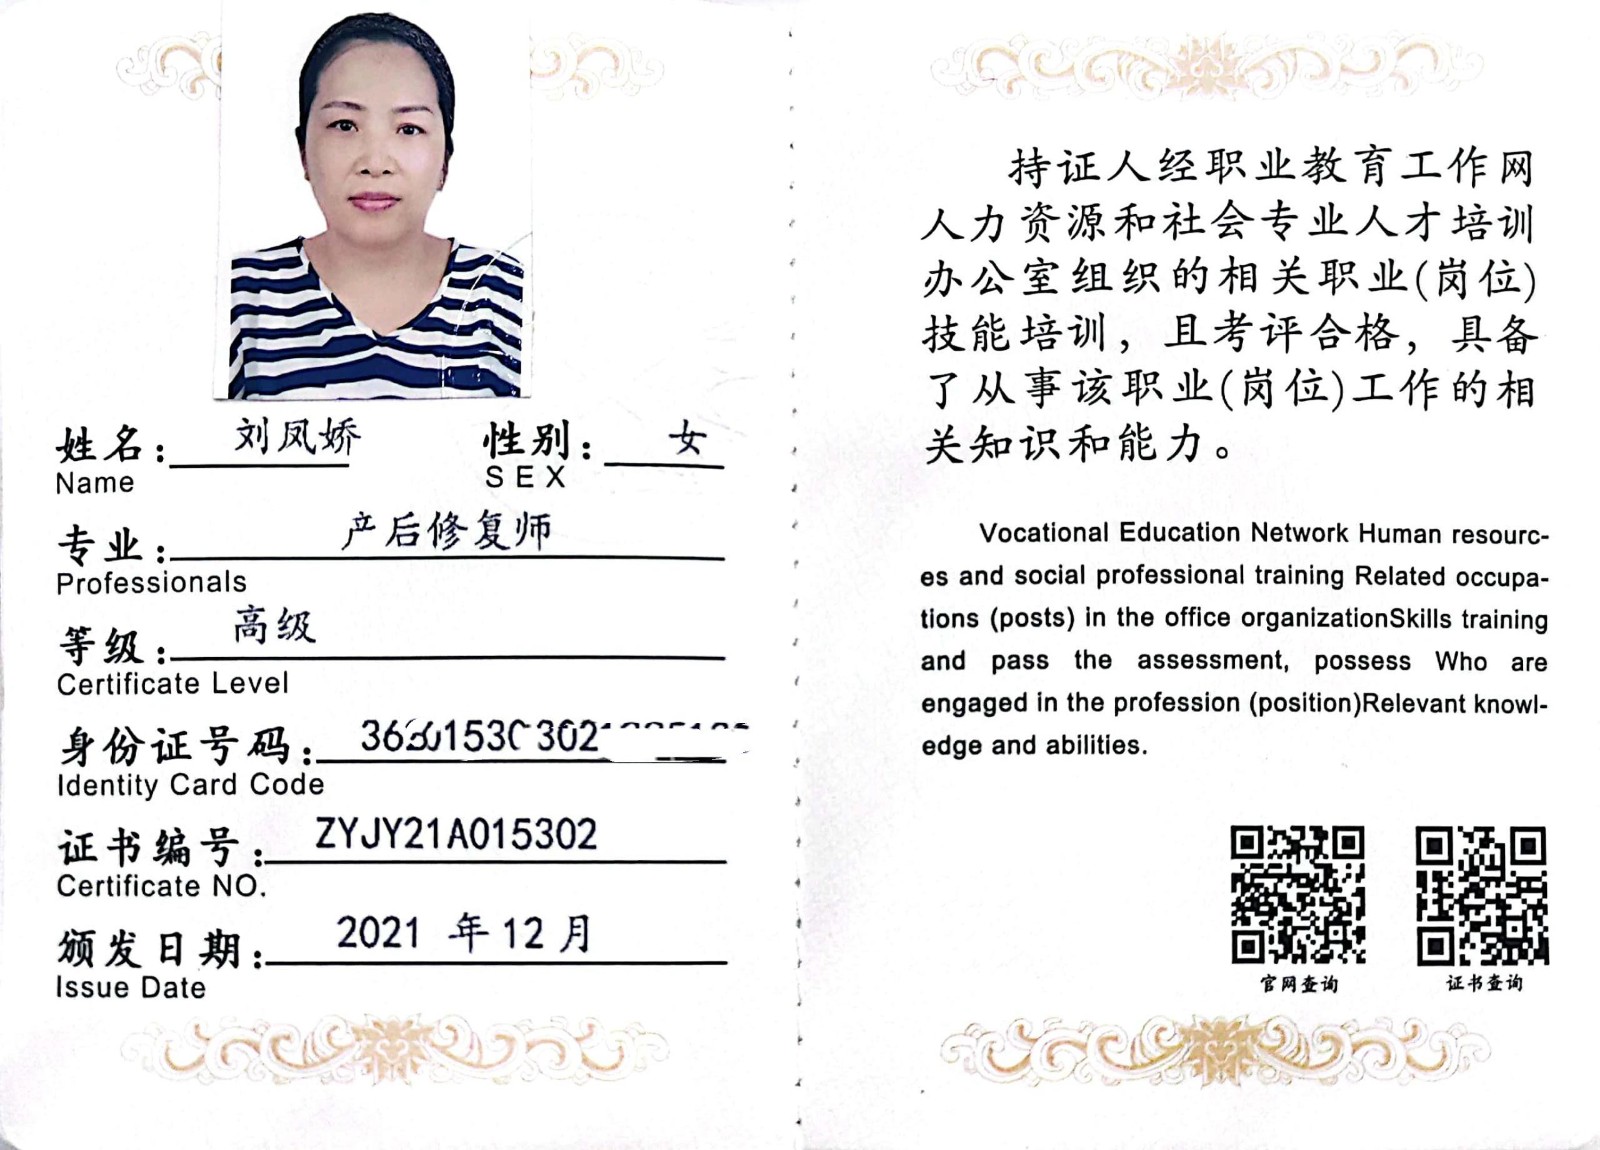 姓名： 刘凤娇 性别： 女
Name SEX
专业： 产后修复师
Professionals
等级： 高级
Certificate Level
身份证号码：
Identity Card Code
证书编号： ZYJY21A015302
Certificate NO.
颁发日期： 2021 年 12 月
Issue Date
持证人经职业教育工作网
人力资源和社会专业人才培训
办公室组织的相关职业(岗位)
技能培训，且考评合格，具备
了从事该职业(岗位)工作的相
关知识和能力。
Vocational Education Network Human resourc-
es and social professional training Related occupa-
tions (posts) in the office organizationSkills training
and pass the assessment, possess Who are
engaged in the profession (position)Relevant knowl-
edge and abilities.
官网查询 证书查询